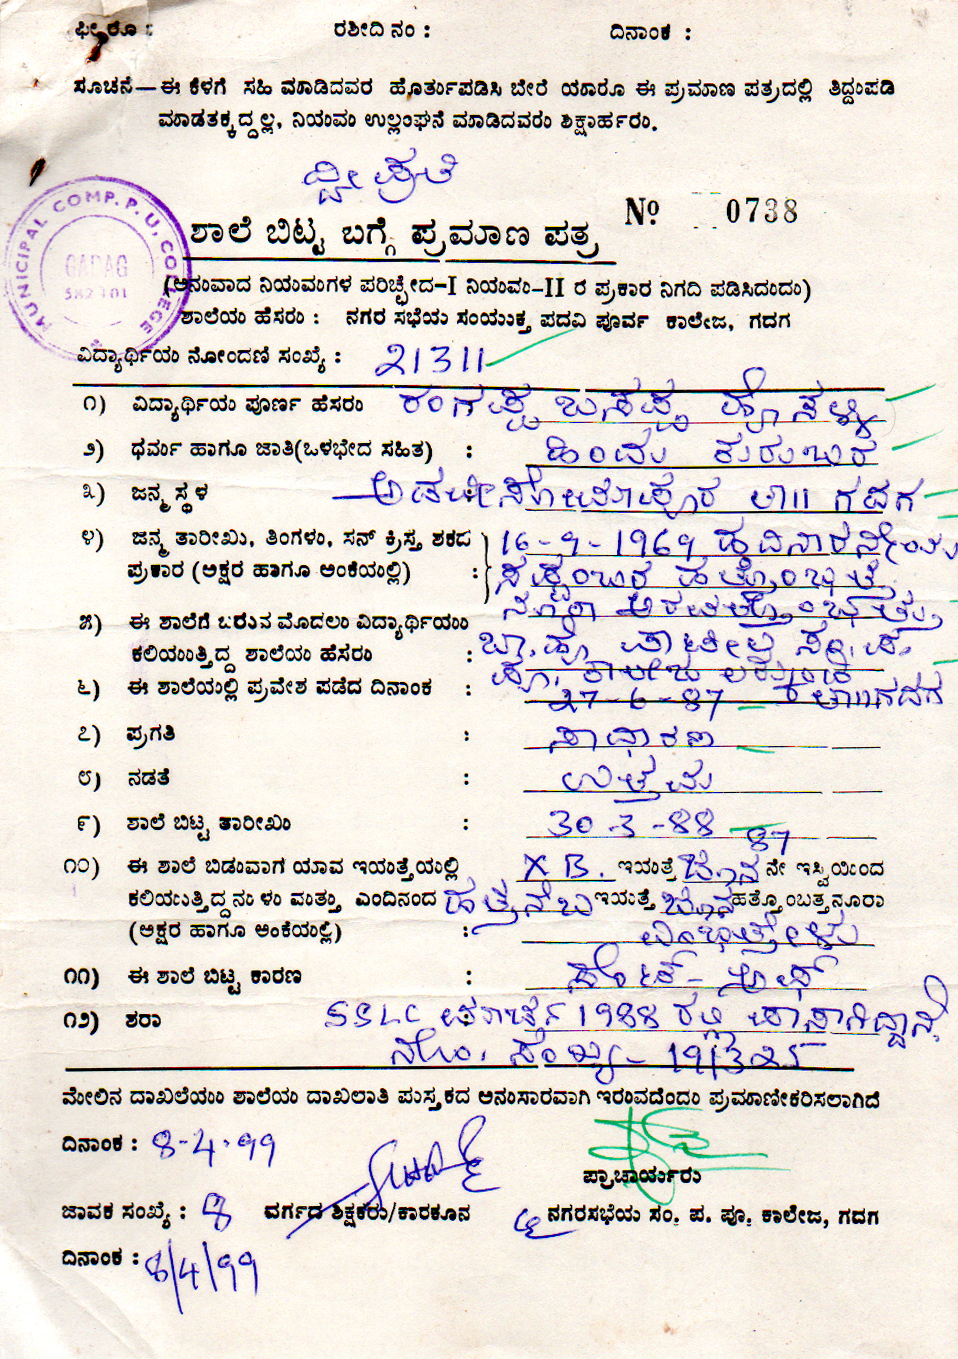 ಫೀ ರೂ : ರಶೀದಿ ನಂ : ದಿನಾಂಕ :
ಸೂಚನೆ—ಈ ಕೆಳಗೆ ಸಹಿ ಮಾಡಿದವರ ಹೊರ್ತುಪಡಿಸಿ ಬೇರೆ ಯಾರೂ ಈ ಪ್ರಮಾಣ ಪತ್ರದಲ್ಲಿ ತಿದ್ದುಪಡಿ
ಮಾಡತಕ್ಕದ್ದಲ್ಲ, ನಿಯಮ ಉಲ್ಲಂಘನೆ ಮಾಡಿದವರು ಶಿಕ್ಷಾರ್ಹರು.
ದ್ವೀ ಪ್ರತಿ
MUNICIPAL COMP. P. U. COLLEGE
GADAG
582 101
ಶಾಲೆ ಬಿಟ್ಟ ಬಗ್ಗೆ ಪ್ರಮಾಣ ಪತ್ರ Nº 0738
(ಅನುವಾದ ನಿಯಮಗಳ ಪರಿಚ್ಛೇದ-I ನಿಯಮ-II ರ ಪ್ರಕಾರ ನಿಗದಿ ಪಡಿಸಿದುದು)
ಶಾಲೆಯ ಹೆಸರು : ನಗರ ಸಭೆಯ ಸಂಯುಕ್ತ ಪದವಿ ಪೂರ್ವ ಕಾಲೇಜ, ಗದಗ
ವಿದ್ಯಾರ್ಥಿಯ ನೋಂದಣಿ ಸಂಖ್ಯೆ : 21311
೧) ವಿದ್ಯಾರ್ಥಿಯ ಪೂರ್ಣ ಹೆಸರು ರಂಗಪ್ಪ ಬಸಪ್ಪ
೨) ಧರ್ಮ ಹಾಗೂ ಜಾತಿ(ಒಳಭೇದ ಸಹಿತ) : ಹಿಂದು ಕುರುಬರ
೩) ಜನ್ಮ ಸ್ಥಳ ತಾ॥ ಗದಗ
೪) ಜನ್ಮ ತಾರೀಖು, ತಿಂಗಳು, ಸನ್ ಕ್ರಿಸ್ತ ಶಕದ 16-9-1969 ಹದಿನಾರನೇಯ
ಪ್ರಕಾರ (ಅಕ್ಷರ ಹಾಗೂ ಅಂಕೆಯಲ್ಲಿ) : ಸಪ್ಟಂಬರ ಹತ್ತೊಂಭತ್ತ
ನೂರಾ ಅರವತ್ತೊಂಭತ್ತು
೫) ಈ ಶಾಲೆಗೆ ಬರುವ ಮೊದಲು ವಿದ್ಯಾರ್ಥಿಯು
ಕಲಿಯುತ್ತಿದ್ದ ಶಾಲೆಯ ಹೆಸರು : ಪಾಟೀಲ ಸಂ. ಪ.
ಪೂ. ಕಾಲೇಜ
೬) ಈ ಶಾಲೆಯಲ್ಲಿ ಪ್ರವೇಶ ಪಡೆದ ದಿನಾಂಕ : 27-6-87 ತಾ॥ಗದಗ
೭) ಪ್ರಗತಿ : ಸಾಧಾರಣ
೮) ನಡತೆ : ಉತ್ತಮ
೯) ಶಾಲೆ ಬಿಟ್ಟ ತಾರೀಖು : 30-3-88
೧೦) ಈ ಶಾಲೆ ಬಿಡುವಾಗ ಯಾವ ಇಯತ್ತೆಯಲ್ಲಿ X B. ಇಯತ್ತೆ ಜೂನ 87 ನೇ ಇಸ್ವಿಯಿಂದ
ಕಲಿಯುತ್ತಿದ್ದನು ಳು ಮತ್ತು ಎಂದಿನಿಂದ ಹತ್ತನೆಬ ಇಯತ್ತೆ ಜೂನ ಹತ್ತೊಂಬತ್ತನೂರಾ
(ಅಕ್ಷರ ಹಾಗೂ ಅಂಕೆಯಲ್ಲಿ) : ಎಂಭತ್ತೇಳು
೧೧) ಈ ಶಾಲೆ ಬಿಟ್ಟ ಕಾರಣ :
೧೨) ಶರಾ : SSLC ಮಾರ್ಚ 1988 ರಲ್ಲಿ ಪಾಸಾಗಿದ್ದಾನೆ.
ಸಂಖ್ಯೆ - 191325
ಮೇಲಿನ ದಾಖಲೆಯು ಶಾಲೆಯ ದಾಖಲಾತಿ ಪುಸ್ತಕದ ಅನುಸಾರವಾಗಿ ಇರುವದೆಂದು ಪ್ರಮಾಣೀಕರಿಸಲಾಗಿದೆ
ದಿನಾಂಕ : 8-4-99
ಪ್ರಾಚಾರ್ಯರು
ಜಾವಕ ಸಂಖ್ಯೆ : 8 ವರ್ಗದ ಶಿಕ್ಷಕರು/ಕಾರಕೂನ ನಗರಸಭೆಯ ಸಂ. ಪ. ಪೂ. ಕಾಲೇಜ, ಗದಗ
ದಿನಾಂಕ : 8/4/99